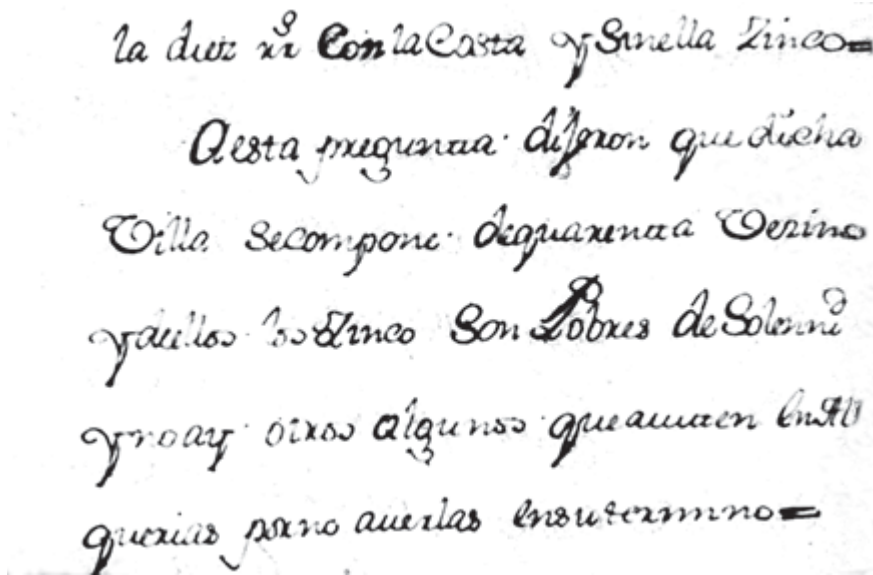 la diez rrs Con la Costa y sinella Zinco=
Aesta pregunta dijeron que dicha
Villa secompone dequarenta Vezinos
ydeellos los Zinco Son Pobres deSolennd
ynoay otros algunos queauiten enAl
querias porno auerlas ensutermino=